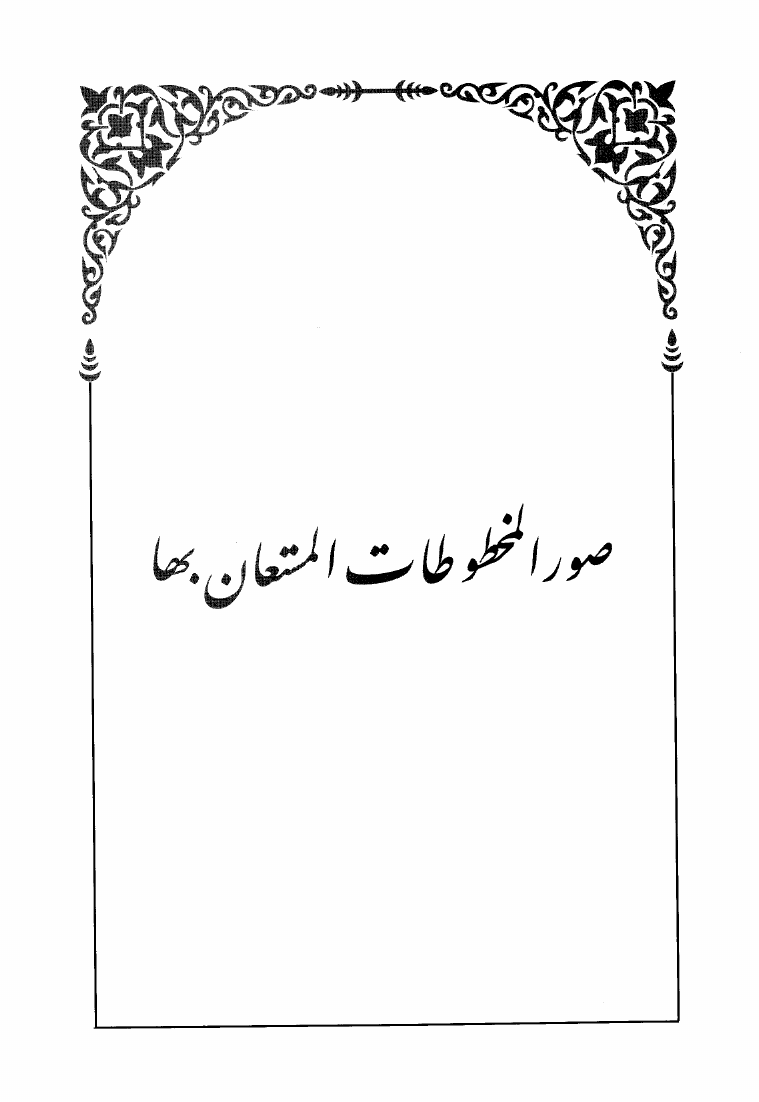 صور المخطوطات المستعان بها